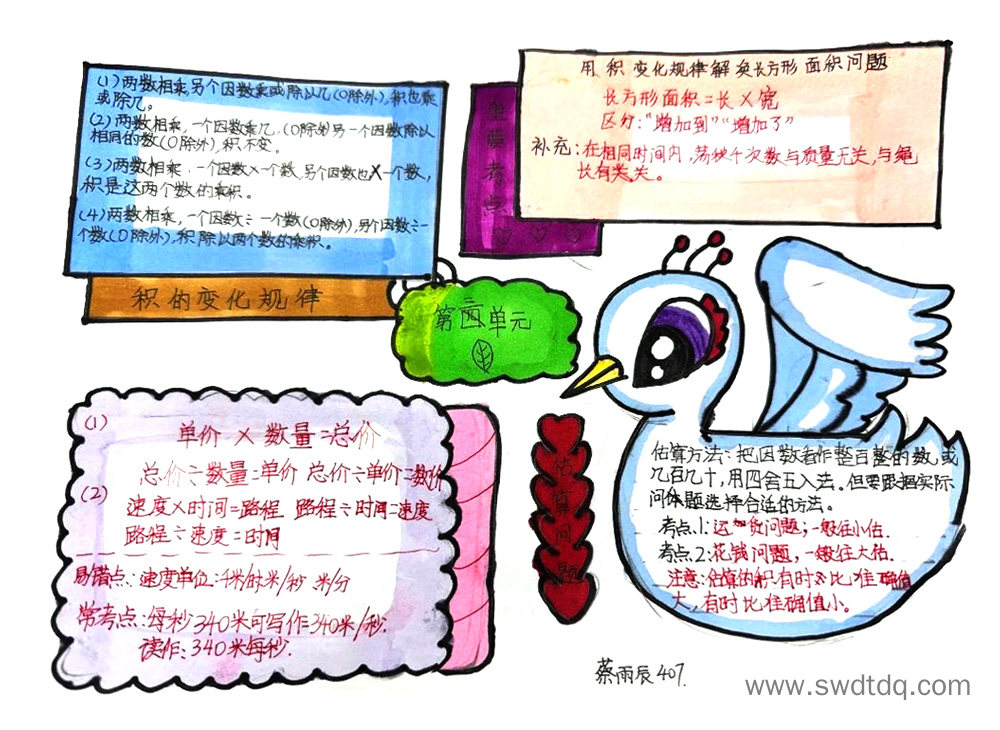 (1)两数相乘,另个因数乘或除以几(0除外),积也乘
或除几。
(2)两数相乘,一个因数乘几,(0除外)另一个因数除以
相同的数(0除外),积不变。
(3)两数相乘,一个因数×一个数,另个因数也×一个数,
积是这两个数的乘积。
(4)两数相乘,一个因数÷一个数(0除外),另个因数÷一
个数(0除外),积除以两个数的乘积。
积的变化规律
重要考点
用积变化规律解决长方形面积问题
长方形面积=长×宽
区分:“增加到”“增加了”
补充:在相同时间内,荡秋千次数与质量无关,与绳
长有关。
第四单元
(1)
单价×数量=总价
总价÷数量=单价 总价÷单价=数价
(2)
速度×时间=路程 路程÷时间=速度
路程÷速度=时间
易错点:速度单位:千米/时 米/秒 米/分
常考点:每秒340米可写作340米/秒.
读作:340米每秒.
估算问题
估算方法:把因数看作整百整的数,或
几百几十,用四舍五入法。但要跟据实际
问题选择合适的方法。
考点1:运货问题;一般往小估.
考点2:花钱问题,一般往大估.
注意:估算的积有时比准确值
大,有时比准确值小。
蔡雨辰407.
www.swdtdq.com